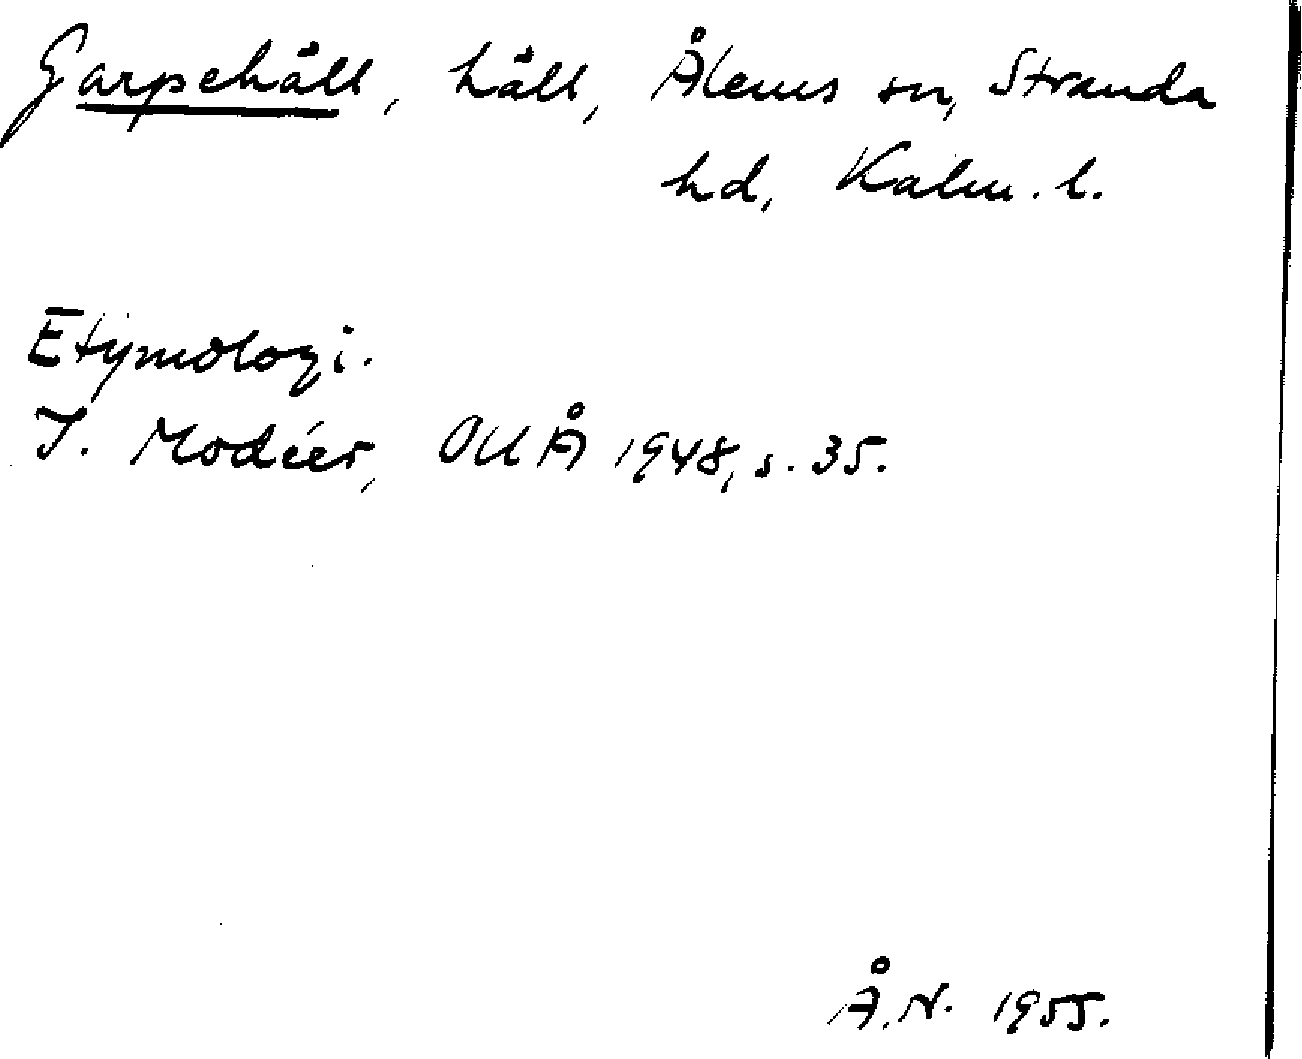 Garpehäll, häll, Ålems sn, Stranda
hd, Kalm. l.
Etymologi.
I. Modéer, OUÅ 1948, s. 35.
Å.N. 1955.